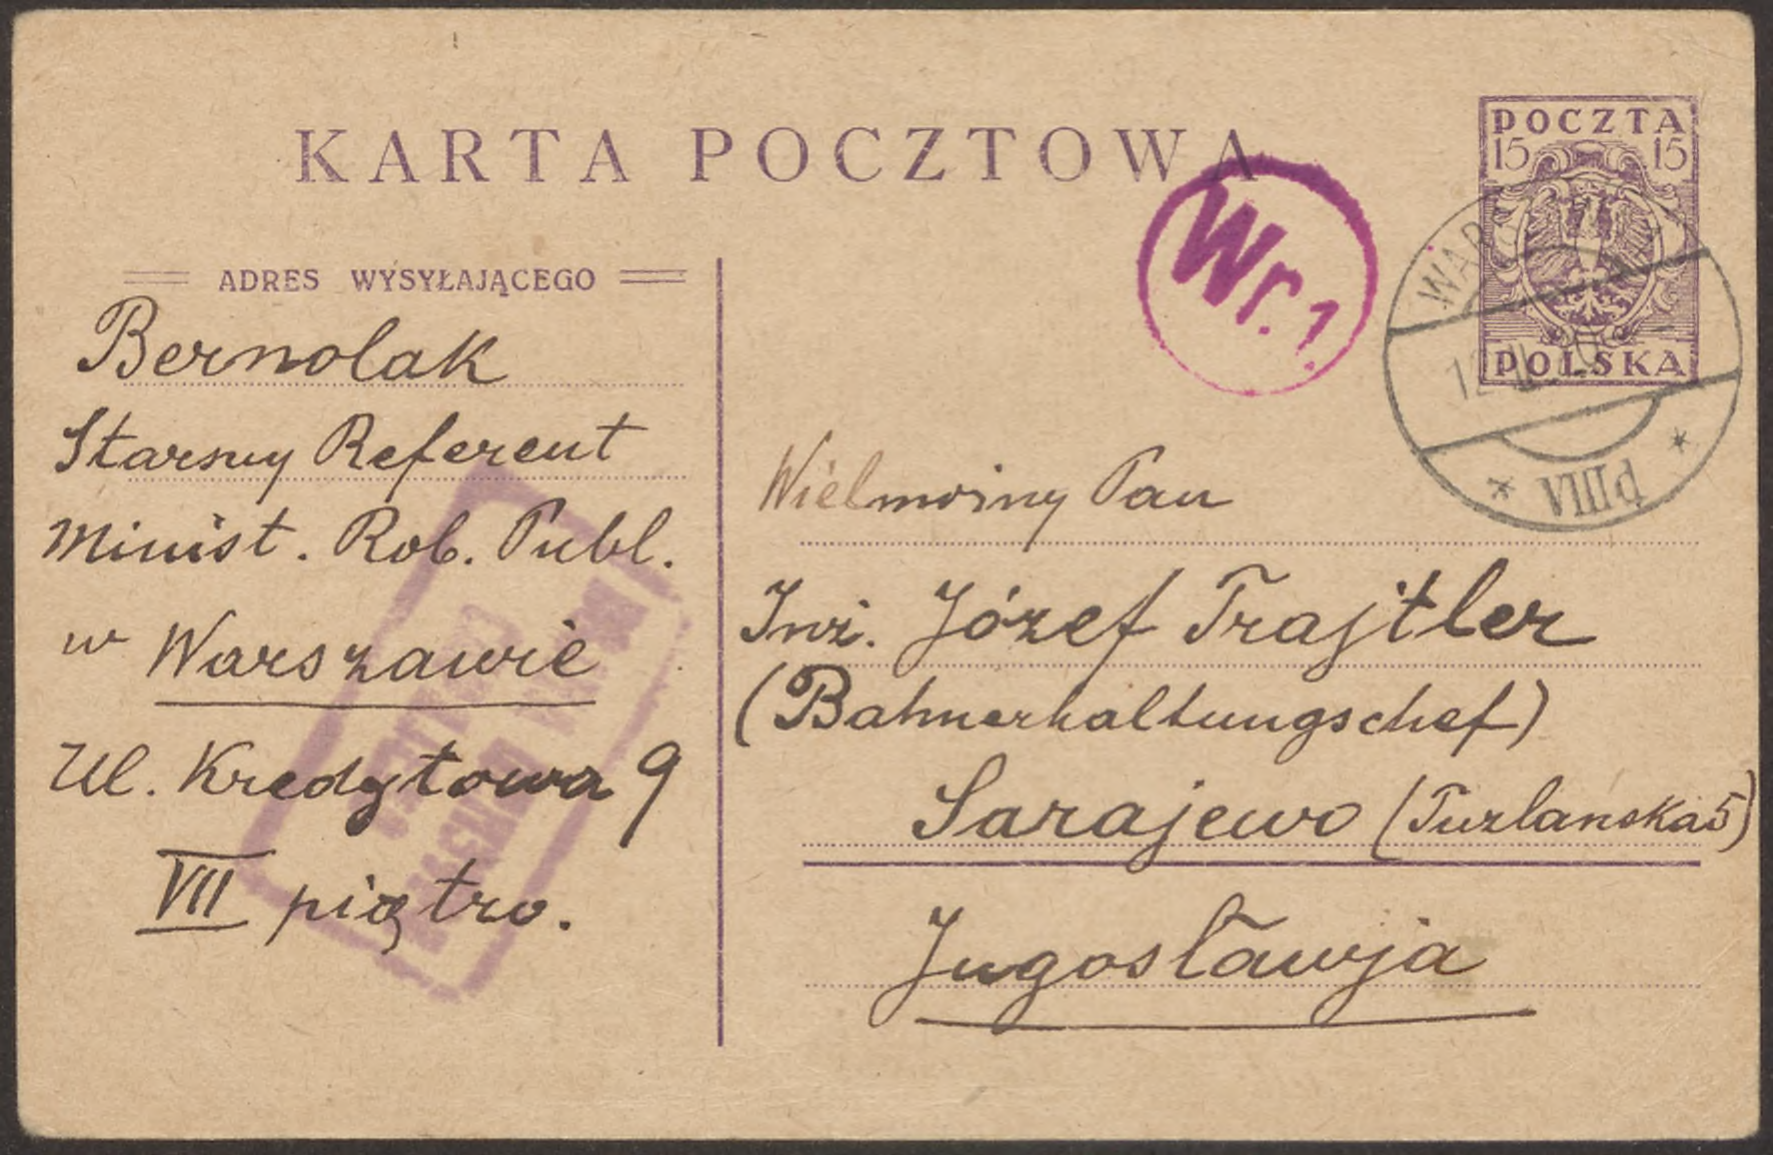 KARTA POCZTOWA
POCZTA
15 15
POLSKA
Wr. 1.
VIIId
ADRES WYSYŁAJĄCEGO
Bernolak
Starszy Referent
Minist. Rob. Publ.
w Warszawie
Ul. Kredytowa 9
VII piętro.
Wielmożny Pan
Inż. Józef Trajtler
(Bahnerhaltungschef)
Sarajewo (Tuzlanska 5)
Jugosławja